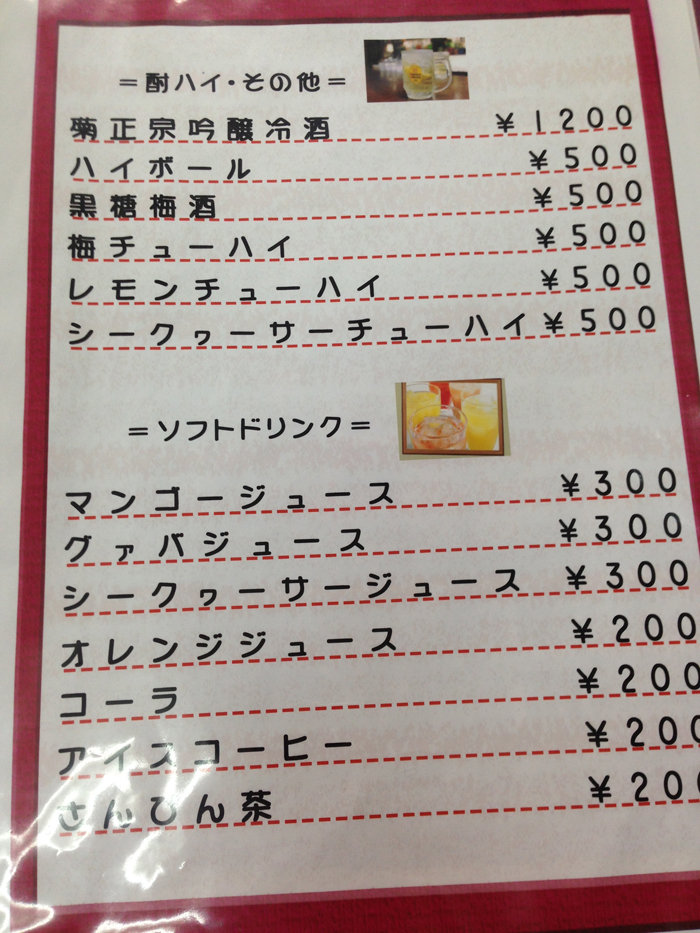 ＝酎ハイ・その他＝
菊正宗吟醸冷酒 ￥1200
ハイボール ￥500
黒糖梅酒 ￥500
梅チューハイ ￥500
レモンチューハイ ￥500
シークヮーサーチューハイ ￥500
＝ソフトドリンク＝
マンゴージュース ￥300
グァバジュース ￥300
シークヮーサージュース ￥300
オレンジジュース ￥200
コーラ ￥200
アイスコーヒー ￥200
さんぴん茶 ￥200